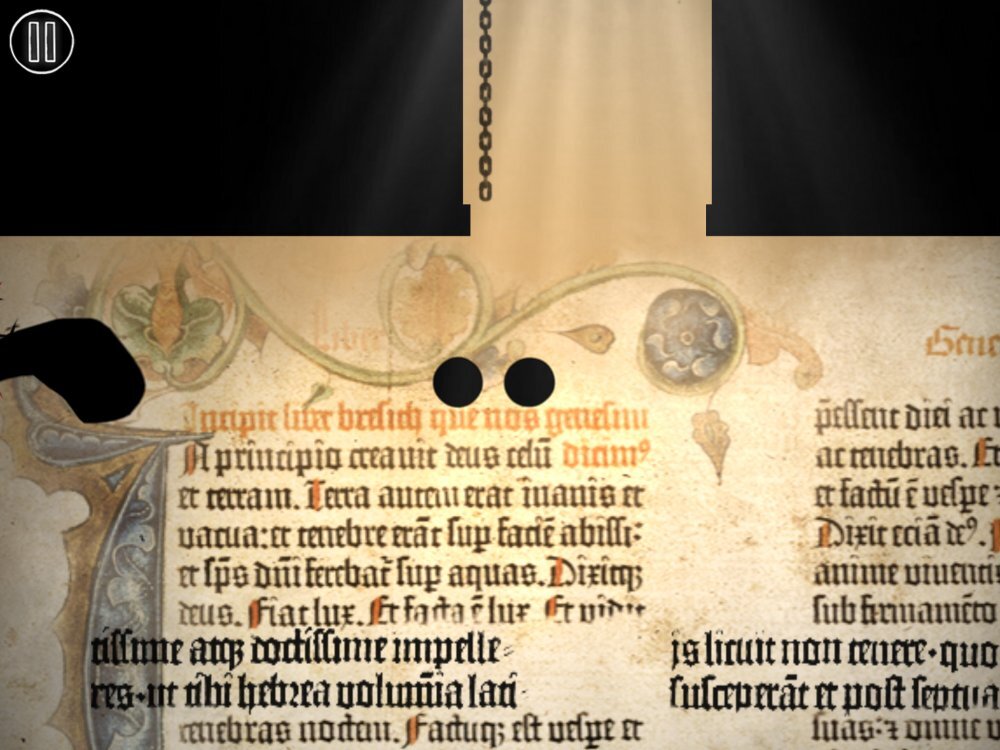 Liber
Incipit liber bresich quē nos genesim
In principio creauit deus celū dicim⁹
et terram. Terra autem erat inanis et
vacua: et tenebre erāt sup faciē abissi:
et sp̄s dn̄i ferebat̄ sup aquas. Dixitqꝫ
deus. Fiat lux. Et facta ē lux. Et vidit
tissime atqꝫ doctissime impelle-
res·ut tibi hebrea volumīa lati-
tenebras noctem. Factuqꝫ est vespe et
Gene
p̄essent diei ac
ac tenebras. Et
et factū ē vespe
Dixit eciā de⁹.
anime viuentis
sub firmamēto
is licuit non tenere·quo
susceperāt et post septua
suas: ⁊ omne